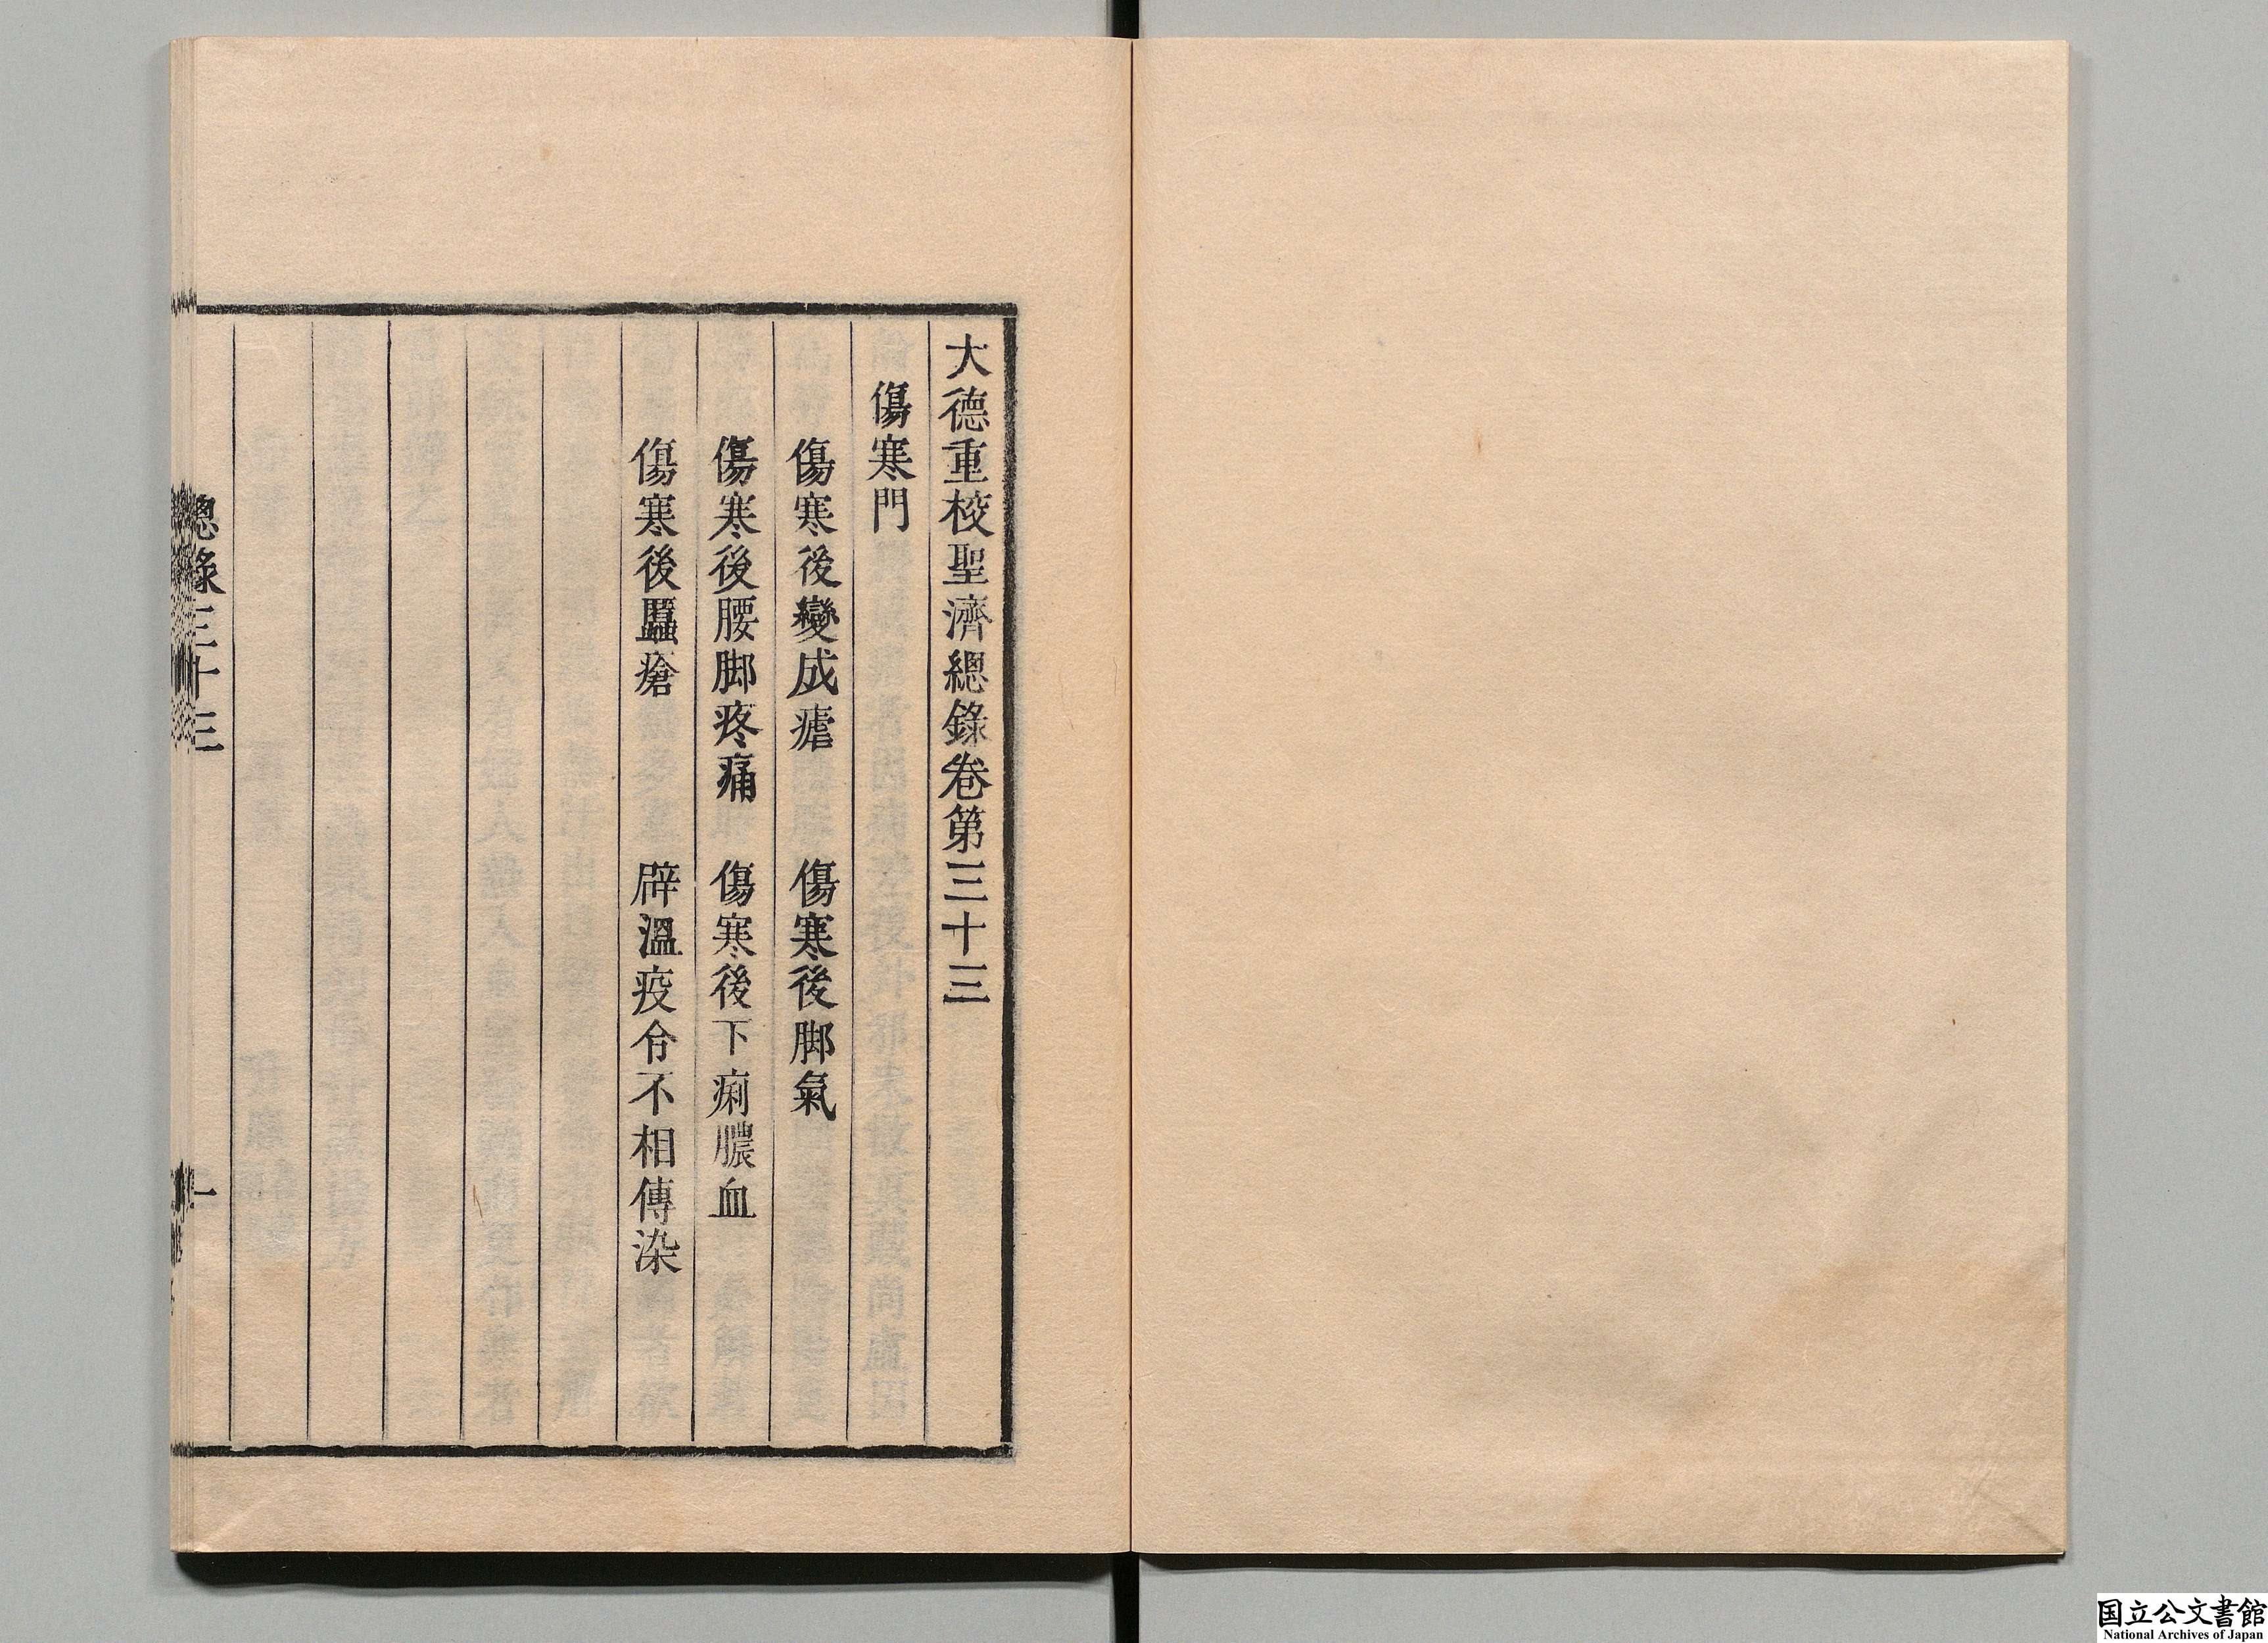 大德重校聖濟總錄卷第三十三
傷寒門
傷寒後變成瘧　傷寒後脚氣
傷寒後腰脚疼痛　傷寒後下痢膿血
傷寒後䘌瘡　辟溫疫令不相傳染
總錄三十三　一
国立公文書館
National Archives of Japan